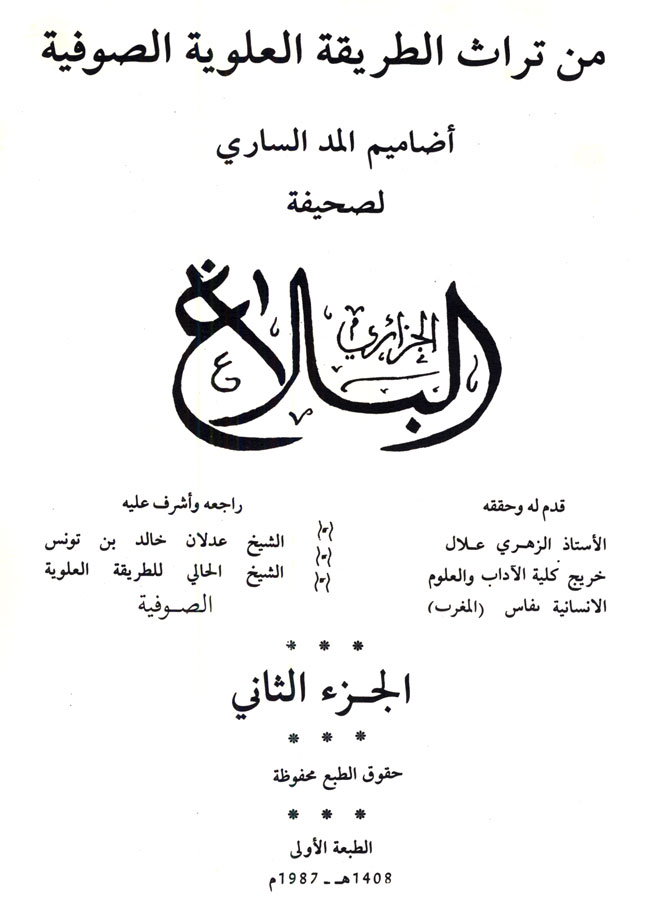 من تراث الطريقة العلوية الصوفية
أضاميم المد الساري
لصحيفة
البلاغ
الجزائري
قدم له وحققه
الأستاذ الزهري علال
خريج كلية الآداب والعلوم
الانسانية بفاس (المغرب)
راجعه وأشرف عليه
الشيخ عدلان خالد بن تونس
الشيخ الحالي للطريقة العلوية
الصوفية
* * *
الجزء الثاني
* * *
حقوق الطبع محفوظة
* * *
الطبعة الأولى
1408هـ - 1987م